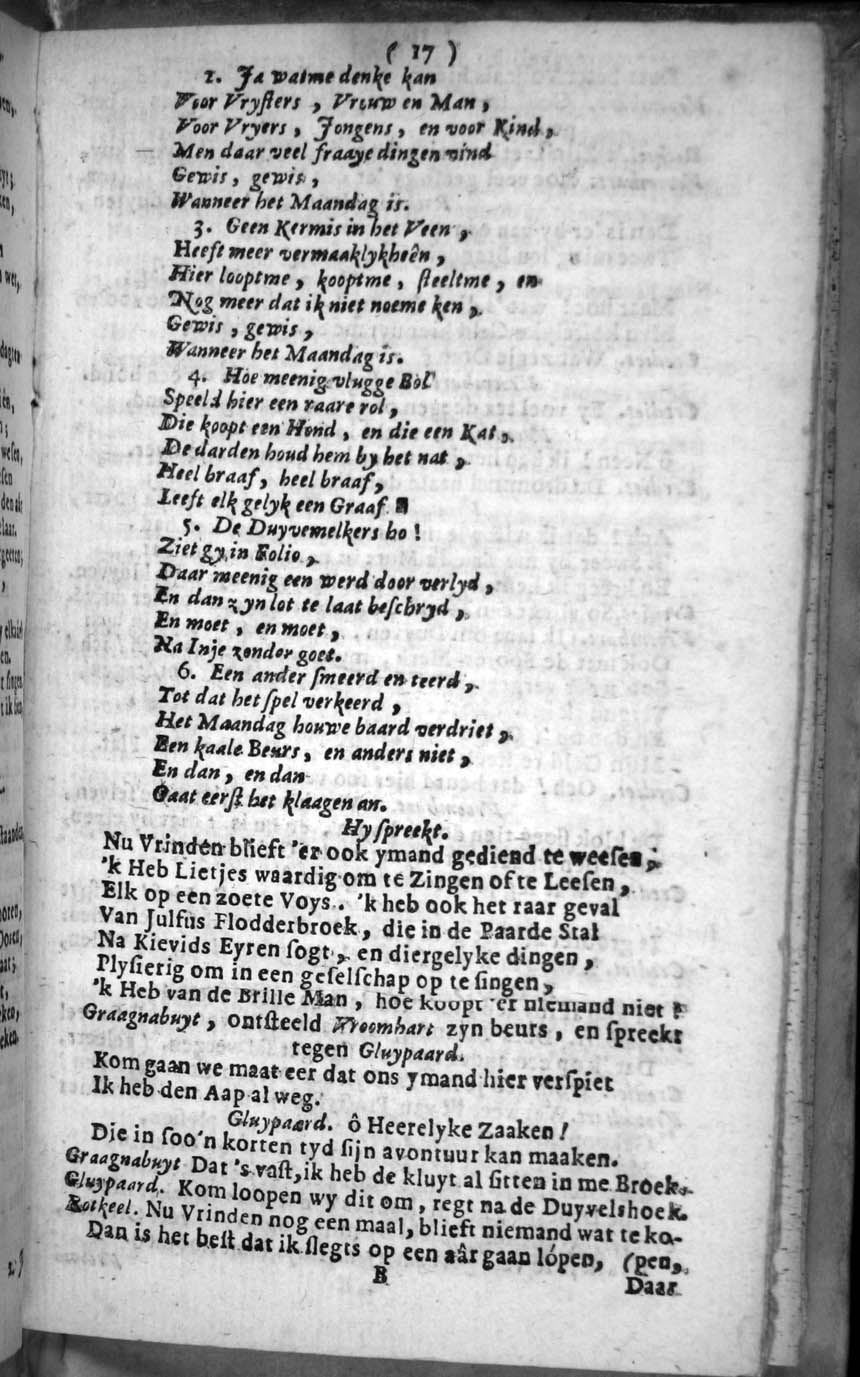 ( 17 )
2. Ja watme denke kan
Voor Vryſters , Vrouw en Man ,
Voor Vryers , Jongens , en voor Kind ,
Men daar veel fraaye dingen vind
Gewis , gewis ,
Wanneer het Maandag is.
3. Geen Kermis in het Veen ,
Heeft meer vermaaklykheên ,
Hier looptme , kooptme , ſteeltme , en
Nog meer dat ik niet noeme ken ,
Gewis , gewis ,
Wanneer het Maandag is.
4. Hoe meenig vlugge Bol
Speeld hier een raare rol ,
Die koopt een Hond , en die een Kat ,
De darden houd hem by het nat ,
Heel braaf, heel braaf,
Leeft elk gelyk een Graaf
5. De Duyvemelkers ho !
Ziet gy in Folio ,
Daar meenig een werd door verlyd ,
En dan zyn lot te laat beſchryd ,
En moet , en moet ,
Na Inje zonder goet.
6. Een ander ſmeerd en teerd ,
Tot dat het ſpel verkeerd ,
Het Maandag houwe baard verdriet ,
Een kaale Beurs , en anders niet ,
En dan , en dan
Gaat eerſt het klaagen an.
Hy ſpreekt.
Nu Vrinden blieft 'er ook ymand gediend te weeſen ;
'k Heb Lietjes waardig om te Zingen of te Leeſen ,
Elk op een zoete Voys. 'k heb ook het raar geval
Van Julfus Flodderbroek , die in de Paarde Stal
Na Kievids Eyren ſogt , en diergelyke dingen ,
Plyſierig om in een geſelſchap op te ſingen ,
'k Heb van de Brille Man , hoe koopt 'er niemand niet ?
Graagnabuyt , ontſteeld Vroomhart zyn beurs , en ſpreekt
tegen Gluypaard.
Kom gaan we maat eer dat ons ymand hier verſpiet
Ik heb den Aap al weg.
Gluypaard. ô Heerelyke Zaaken !
Die in ſoo'n korten tyd ſijn avontuur kan maaken.
Graagnabuyt Dat 's vaſt, ik heb de kluyt al ſitten in me Broek.
Gluypaard. Kom loopen wy dit om , regt na de Duyvelshoek.
Rotkeel. Nu Vrinden nog een maal, blieft niemand wat te ko-
Dan is het beſt dat ik ſlegts op een aâr gaan lópen, (pen,
B
Daar